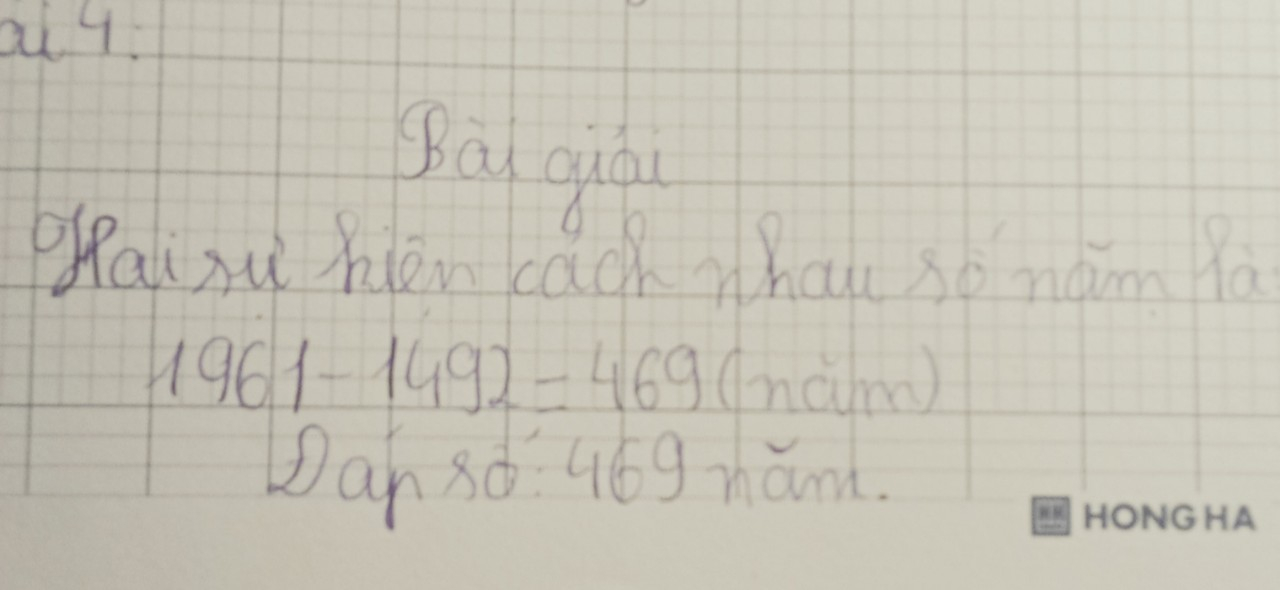 ài 4:
Bài giải
Hai sự kiện cách nhau số năm là
1961 - 1492 = 469 (năm)
Đáp số: 469 năm.
HONG HA